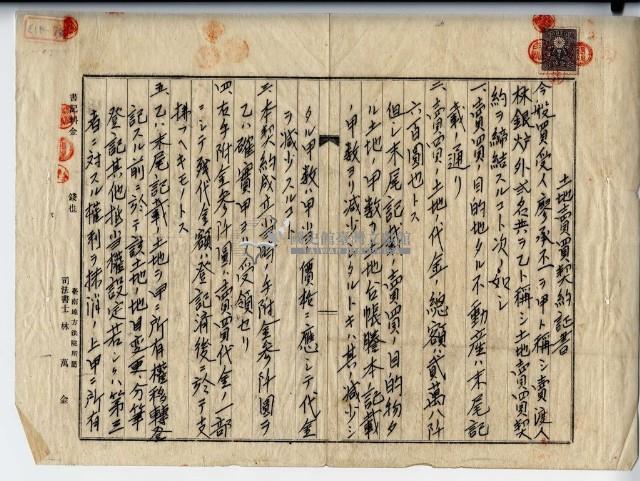 土地賣買契約証書
今般買受人廖承丕ヲ甲ト稱シ賣渡人
林銀炉外弍名共ヲ乙ト稱シ土地賣買契
約ヲ締結スルコト次ノ如シ
一、賣買ノ目的地タル不動産ハ末尾記
載ノ通リ
二、賣買ノ土地代金ノ總額ハ貳萬八阡
六百圓也トス
但シ末尾記載ノ賣買ノ目的物タ
ル土地ノ甲数ハ土地台帳謄本ノ記載
甲数ヨリ減少シタルトキハ其ノ減少シ
タル甲数ノ
價格ニ應シテ代金
ヲ減少スル
三、本契約成立ノ
手附金参阡圓ヲ
乙ハ確實甲ヨリ受領セリ
四、右手附金参阡圓ハ賣買代金ノ一部
ニシテ残代金額ハ登記済後ニ於テ支
拂フヘキモノトス
五、乙ハ末尾記載ノ土地ヲ甲ニ所有權移轉登
記スル前ニ於テ該土地ノ地目変更、分筆
登記其他抵当權設定若シクハ第三
者ニ対スル權利ヲ抹消ノ上甲ニ所有
書記料金
錢也
臺南地方法院所屬
司法書士 林萬金